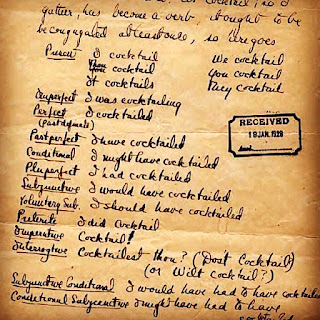 gather, has become a verb, ought to be
be conjugated at least once, so here goes
Present I cocktail We cocktail
Thou cocktail You cocktail
It cocktails They cocktail
Imperfect I was cocktailing
Perfect I cocktailed
(past definite)
RECEIVED
19 JAN. 1928
Past perfect I have cocktailed
Conditional I might have cocktailed
Pluperfect I had cocktailed
Subjunctive I would have cocktailed
Voluntary Sub. I should have cocktailed
Preterite I did cocktail
Imperative Cocktail!
Interrogtive Cocktailest thou? (Dost Cocktail)
(or Wilt cocktail?)
Subjunctive Conditional I would have had to have cocktailed
Conditional Subjunctive I might have had to have